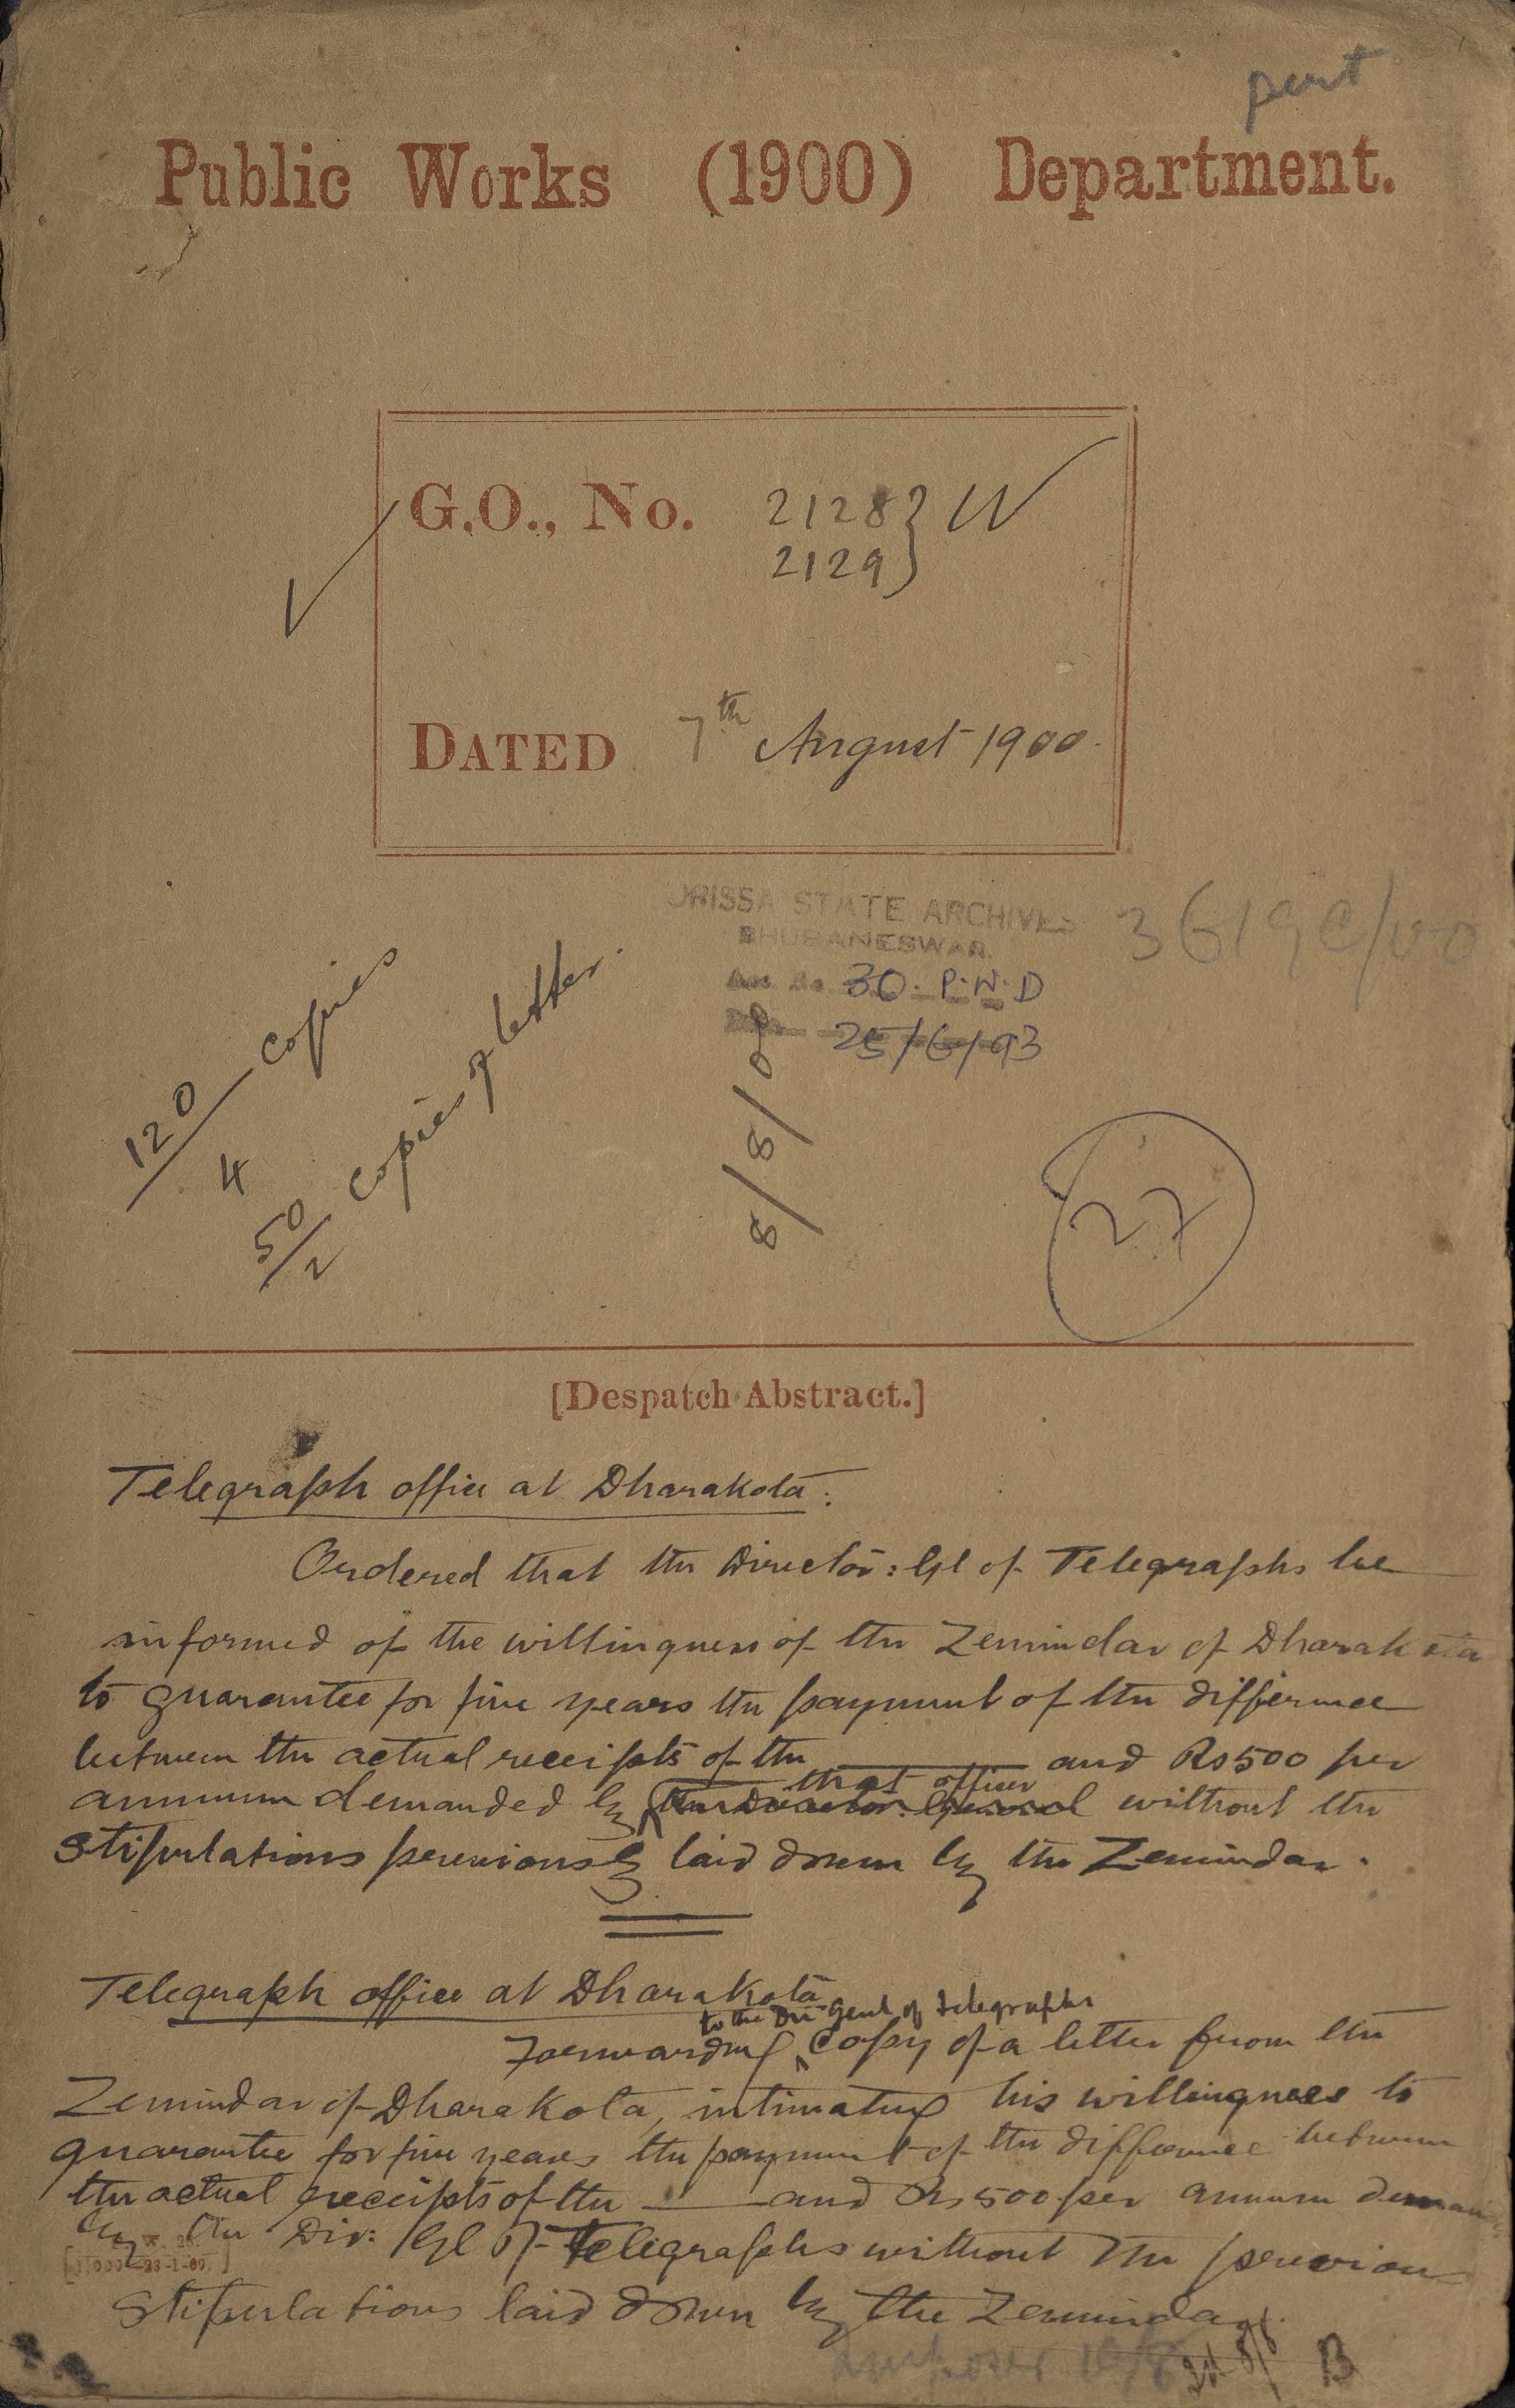 pert
Public Works (1900) Department.
G.O., No. 2128 } W
2129 }
DATED 7th August 1900.
ORISSA STATE ARCHIVES
BHUBANESWAR.
30. P.W.D
25/6/93
120/4 copies
50/2 copies of letter.
8/8/00
27
[Despatch Abstract.]
Telegraph office at Dharakota.
Ordered that the Director: Gl of Telegraphs be
informed of the willingness of the Zemindar of Dharakota
to guarantee for five years the payment of the difference
between the actual receipts of the ——— and Rs 500 per
that officer
annum demanded by the Director: General without the
stipulations previously laid down by the Zemindar.
Telegraph office at Dharakota
to the Dir Genl of telegraphs
Forwarding copy of a letter from the
Zemindar of Dharakota, intimating his willingness to
guarantee for five years the payment of the difference between
the actual receipts of the ——— and Rs 500 per annum
by the Dir: Gl of Telegraphs without the previous
stipulations laid down by the Zemindar.
B